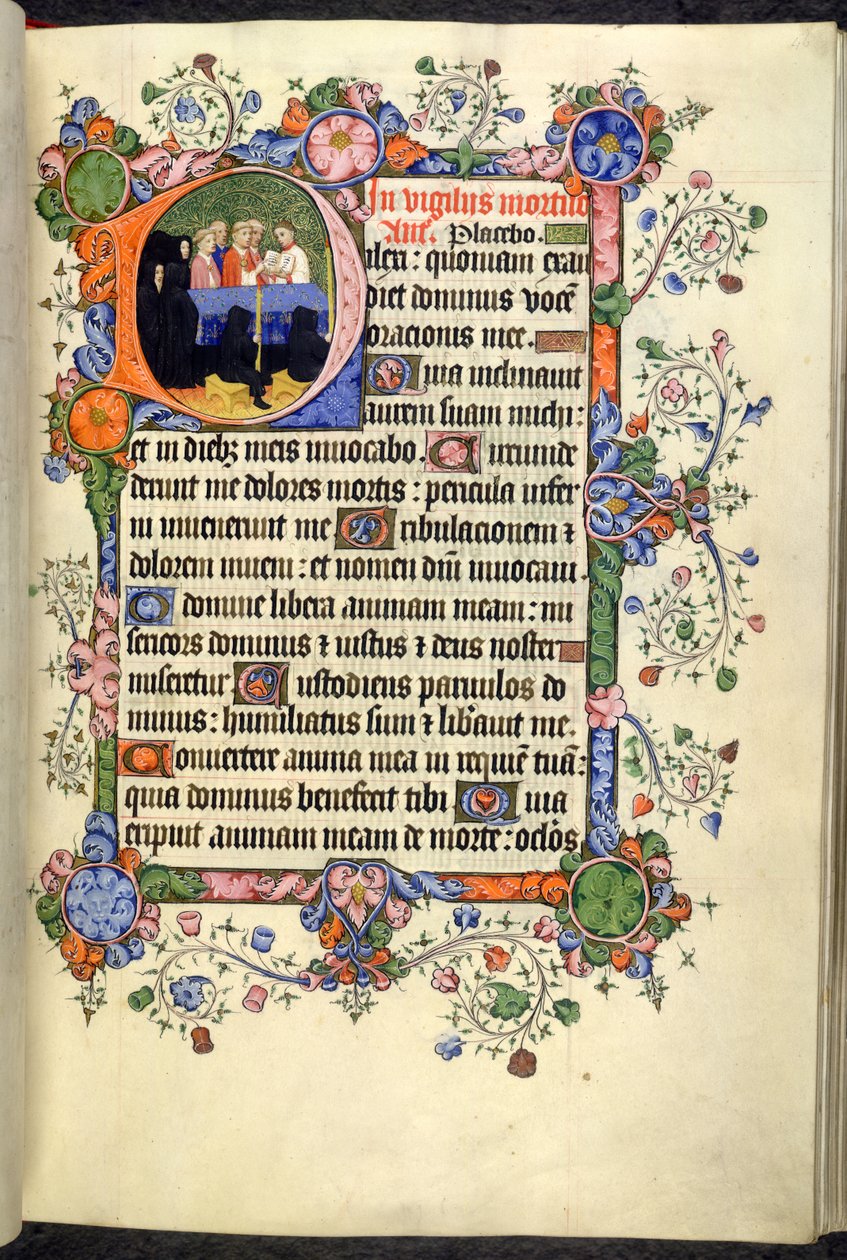 In vigiliis mortuo
Ant. Placebo.
Dilexi : quoniam exau
diet dominus vocē
oracionis mee.
Quia inclinavit
aurem suam michi :
et in diebꝫ meis invocabo. Circumde
derunt me dolores mortis : pericula infer
ni invenerunt me Tribulacionem ⁊
dolorem inveni : et nomen dn̄i invocavi.
O domine libera animam meam : mi
sericors dominus ⁊ iustus ⁊ deus noster
miseretur Custodiens parvulos do
minus : humiliatus sum ⁊ lib̄avit me.
Convertere anima mea in requiē tuā :
quia dominus benefecit tibi Quia
eripuit animam meam de morte : oc̄los